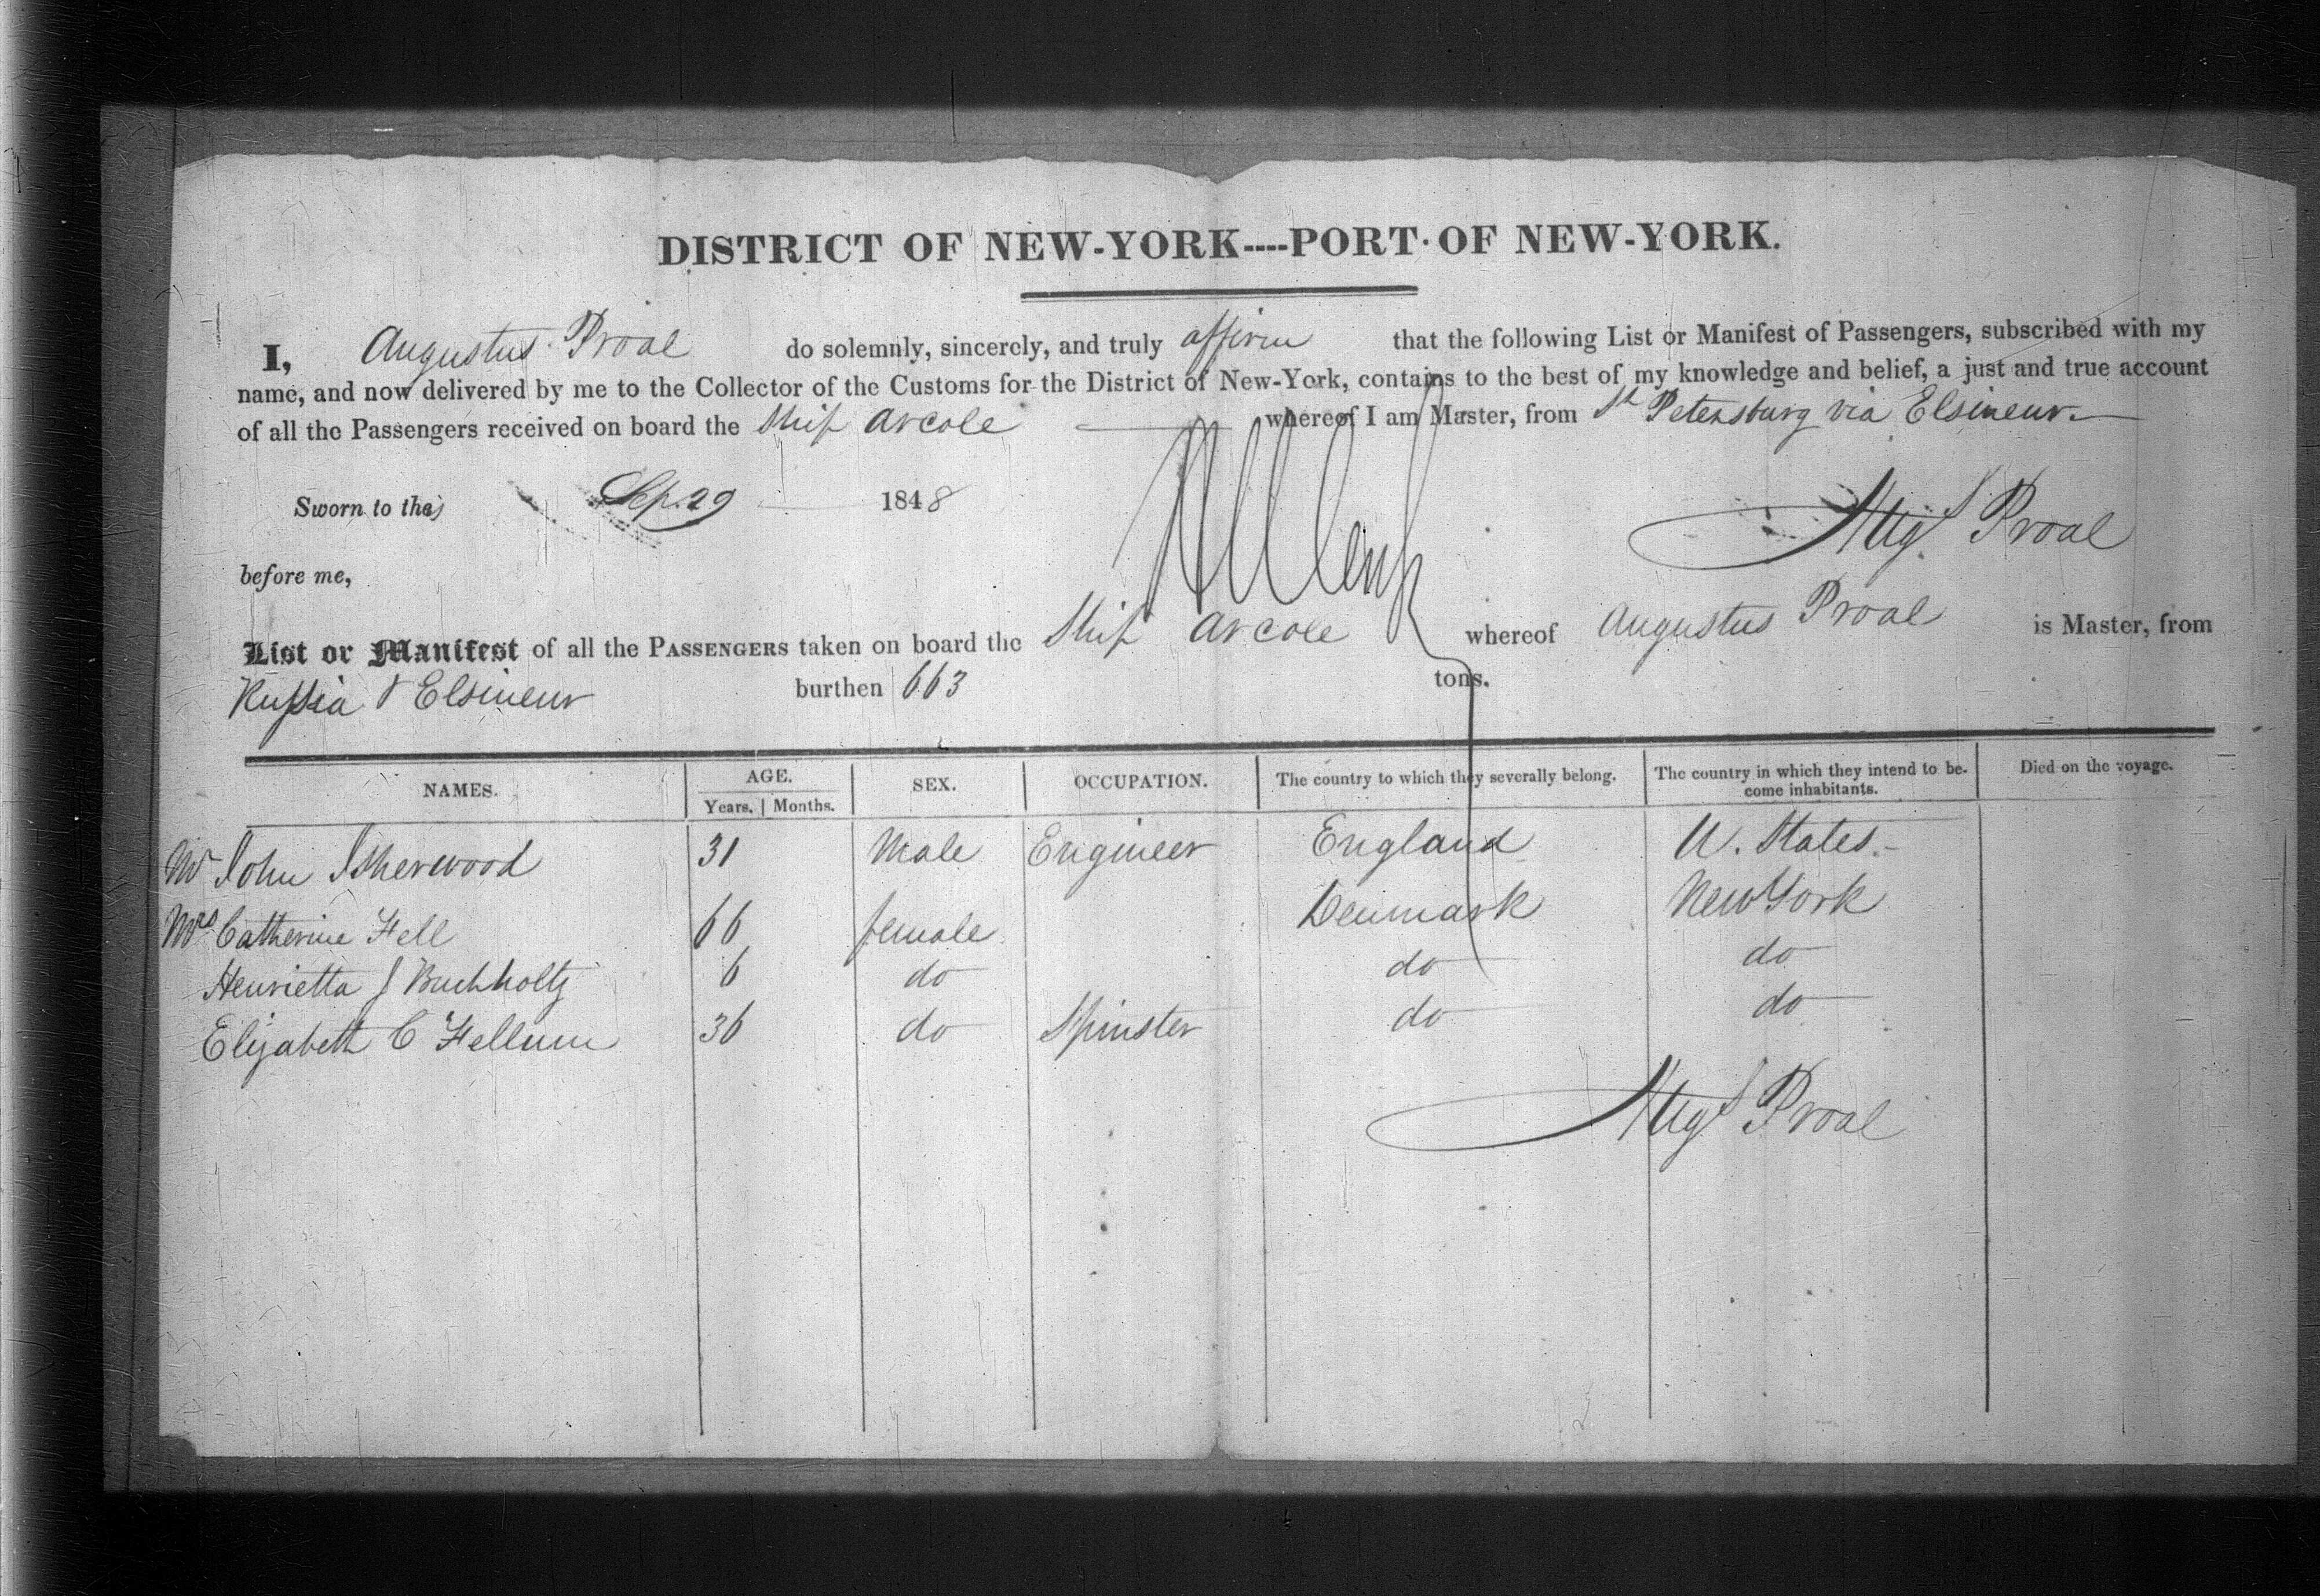 DISTRICT OF NEW-YORK----PORT OF NEW-YORK.
I, Augustus Proal do solemnly, sincerely, and truly affirm that the following List or Manifest of Passengers, subscribed with my
name, and now delivered by me to the Collector of the Customs for the District of New-York, contains to the best of my knowledge and belief, a just and true account
of all the Passengers received on board the Ship Arcole whereof I am Master, from St Petersburg via Elsineur.
Sworn to this Sep. 29 1848
Augt Proal
before me,
List or Manifest of all the PASSENGERS taken on board the Ship Arcole whereof Augustus Proal is Master, from
Russia & Elsineur burthen 663 tons.
NAMES. AGE. Years. Months. SEX. OCCUPATION. The country to which they severally belong. The country in which they intend to become inhabitants. Died on the voyage.
Mr John Isherwood 31 Male Engineer England U. States.
Mrs Catherine Fell 66 female Denmark New York
Henrietta J Buchholtz 6 do do do
Elizabeth C Fellum 36 do Spinster do do
Augt Proal